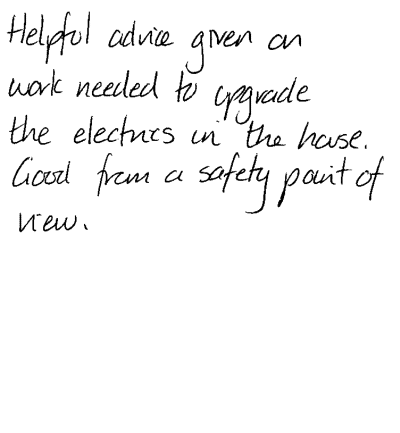 Helpful advice given on
work needed to upgrade
the electrics in the house.
Good from a safety point of
view.